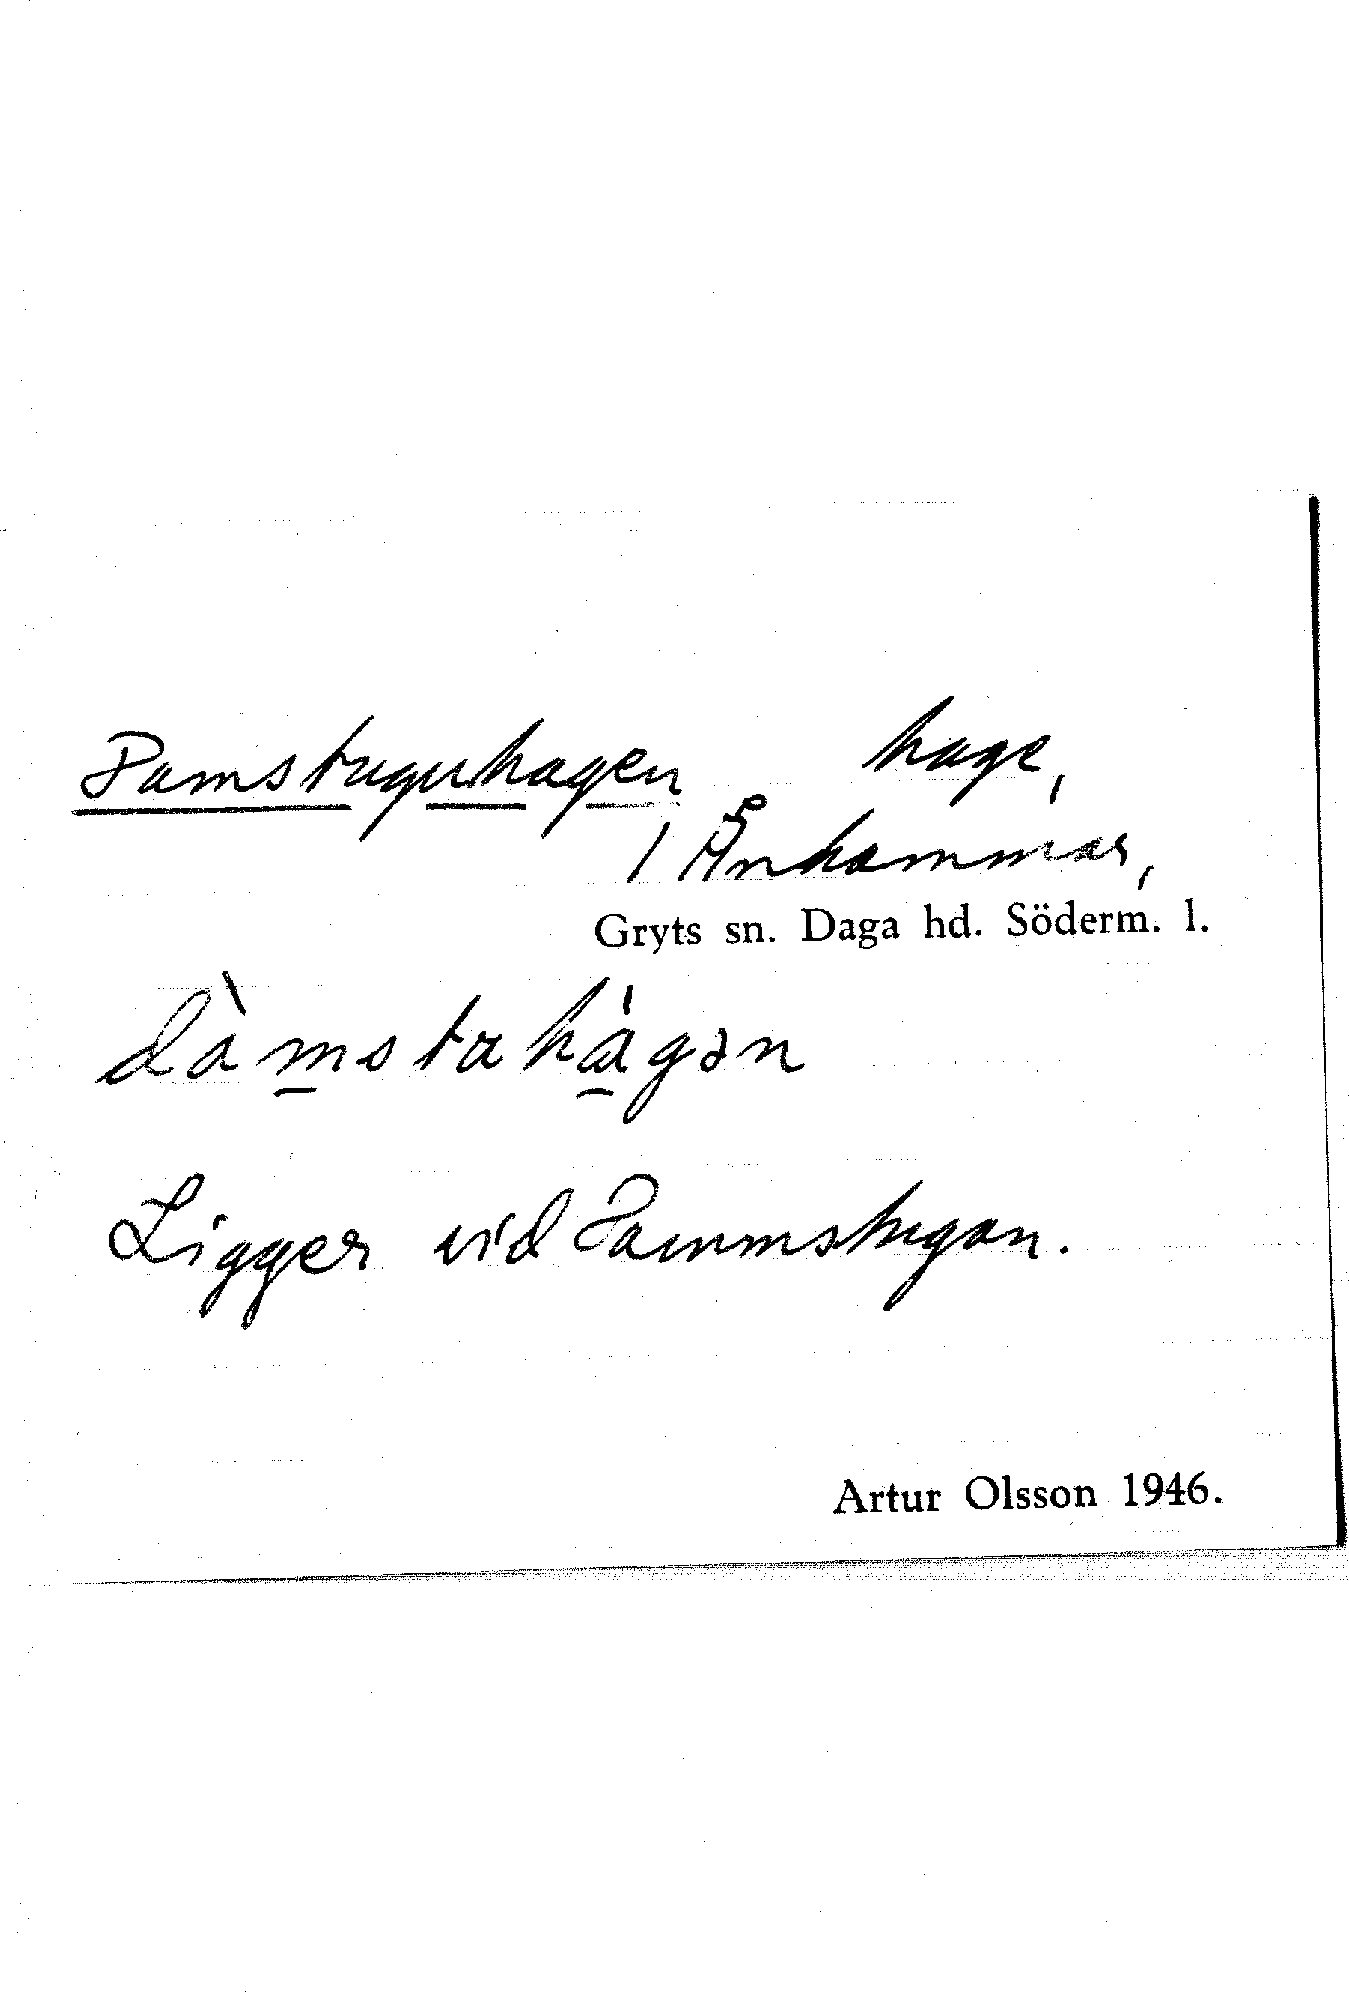 Damstuguhagen hage,
/ Ånhammar,
Gryts sn. Daga hd. Söderm. l.
dàmstahágən
Ligger vid Dammstugan.
Artur Olsson 1946.